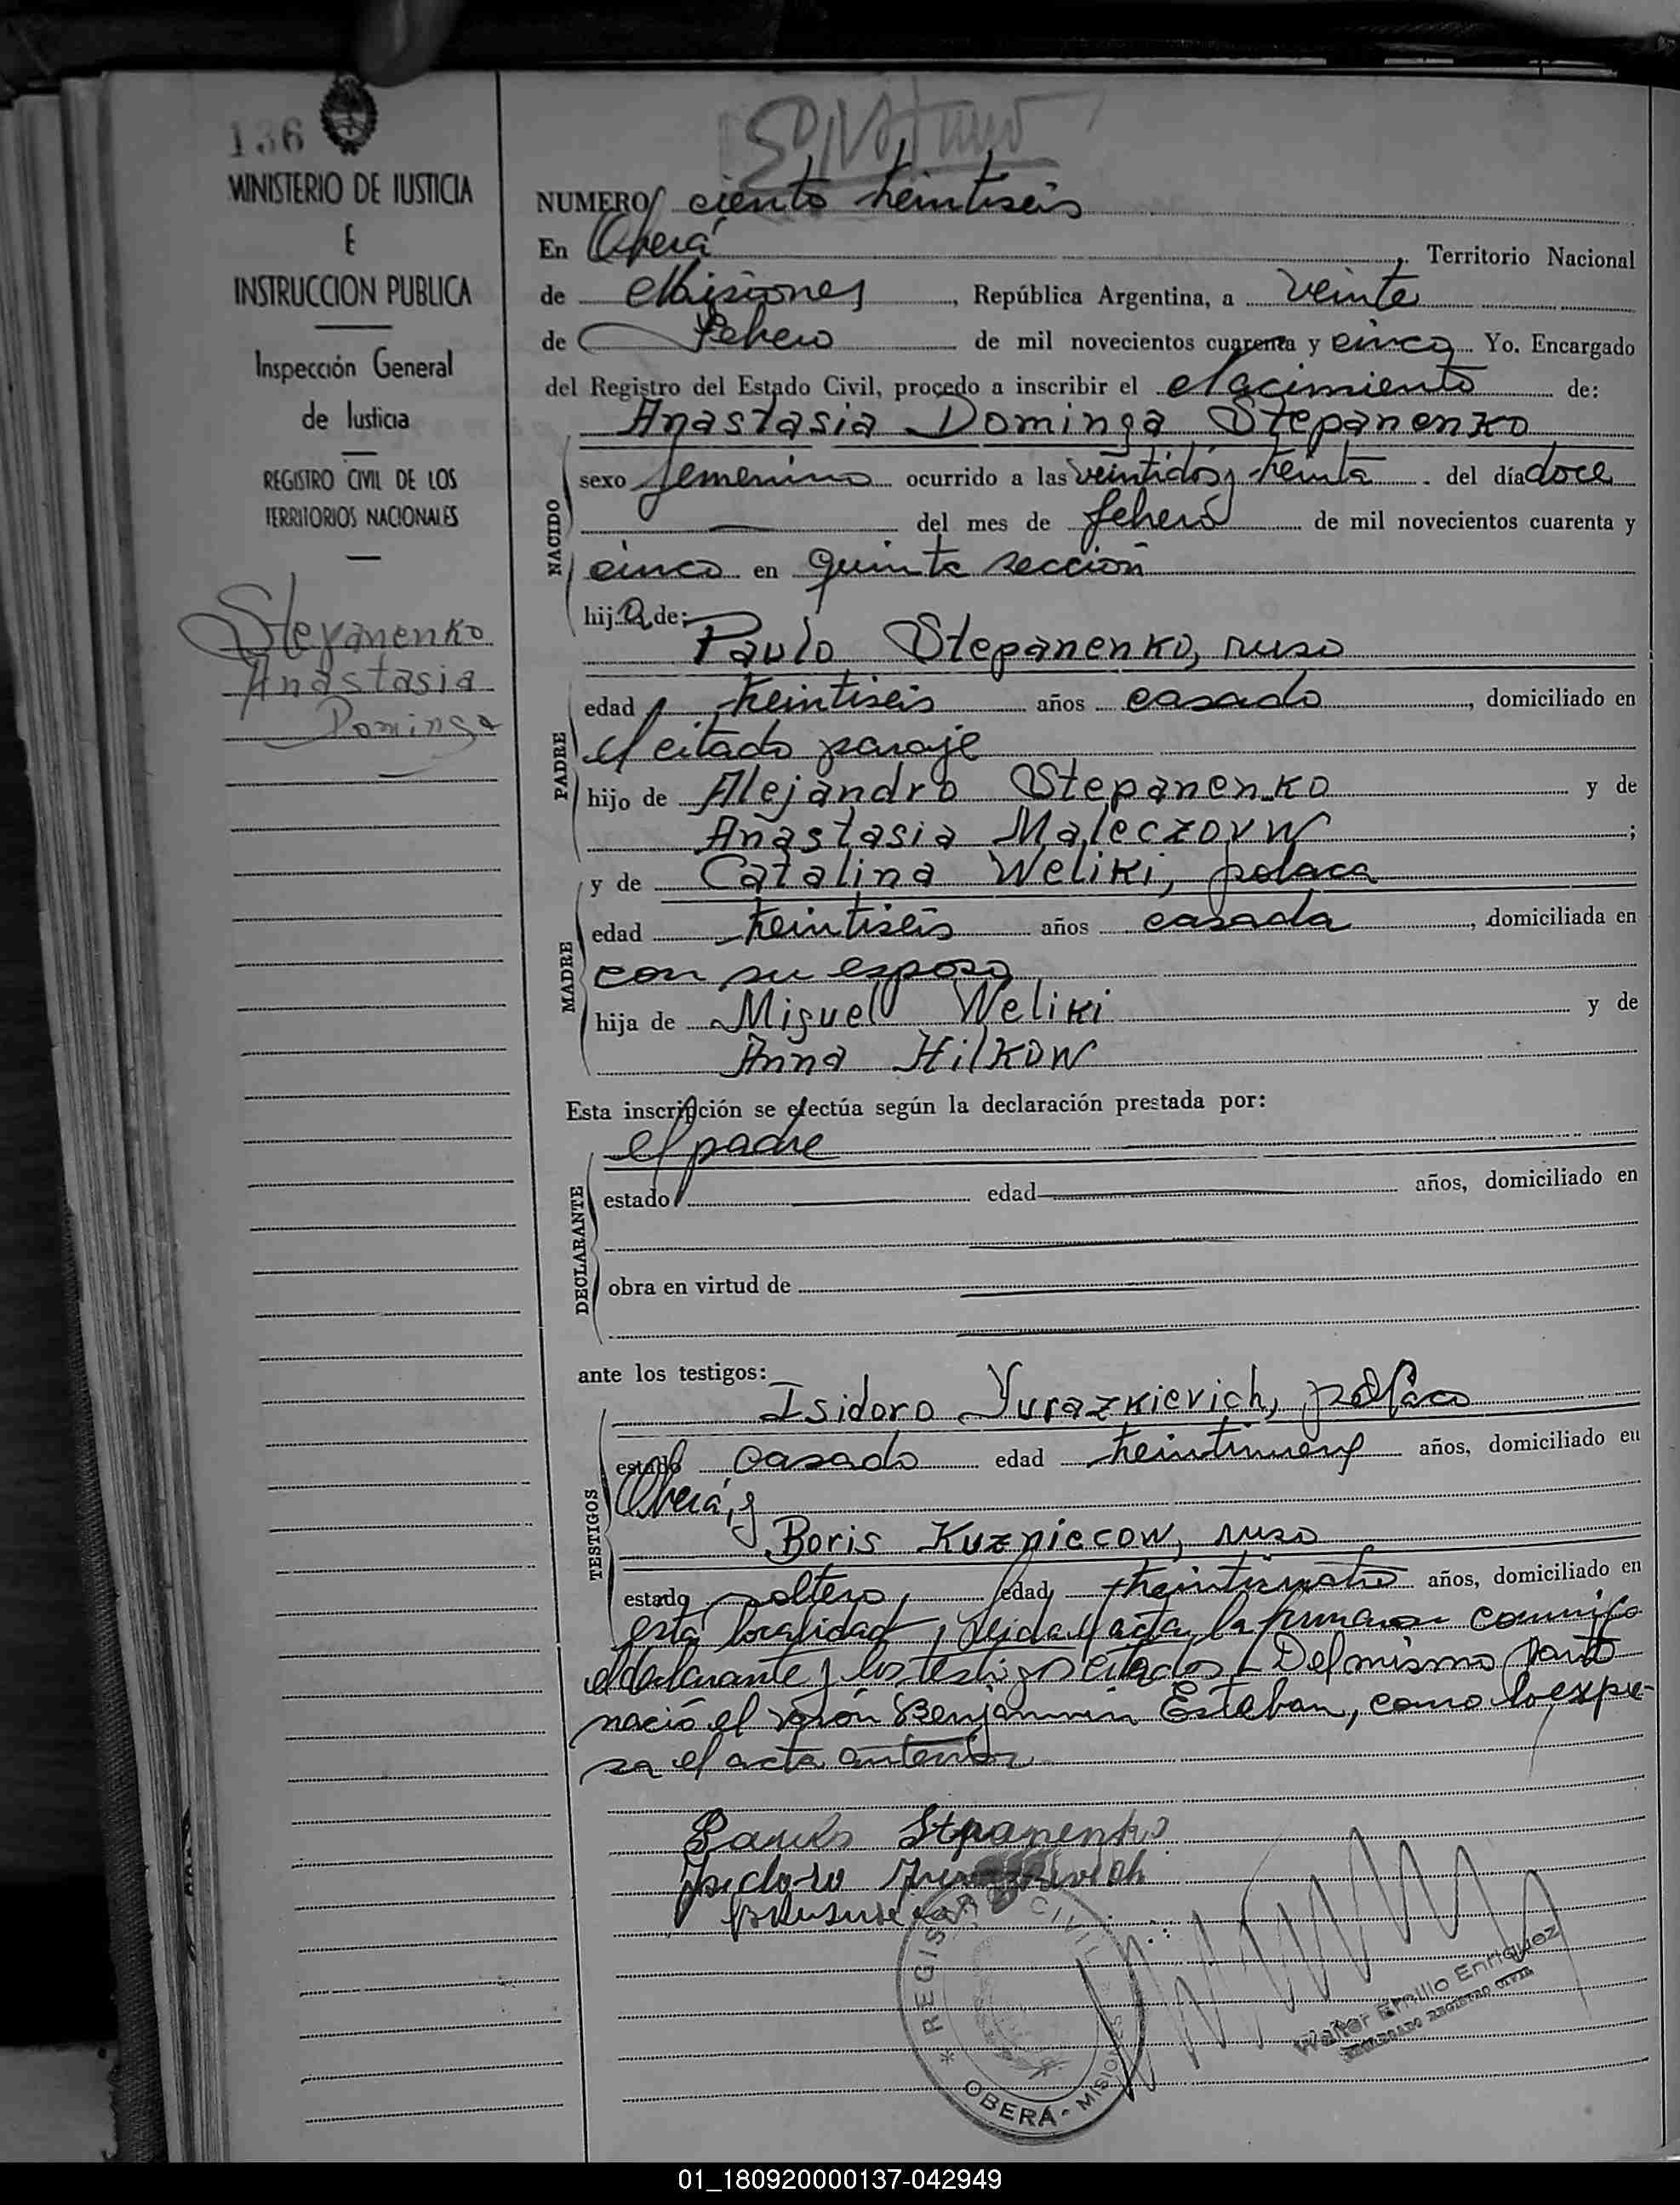 136
MINISTERIO DE JUSTICIA
E
INSTRUCCION PUBLICA
Inspección General
de Justicia
REGISTRO CIVIL DE LOS
TERRITORIOS NACIONALES
Stepanenko
Anastasia
Dominga
NUMERO ciento treintiseis
En Oberá, Territorio Nacional
de Misiones, República Argentina, a veinte
de febrero de mil novecientos cuarenta y cinco Yo. Encargado
del Registro del Estado Civil, procedo a inscribir el Nacimiento de:
Anastasia Dominga Stepanenko
NACIDO
sexo femenino ocurrido a las veintidos y treinta del día doce
del mes de febrero de mil novecientos cuarenta y
cinco en quinta sección
hija de:
Paulo Stepanenko, ruso
PADRE
edad treintiseis años casado, domiciliado en
el citado paraje
hijo de Alejandro Stepanenko y de
Anastasia Maleczovw;
y de Catalina Weliki, polaca
MADRE
edad treintiseis años casada, domiciliada en
con su esposo
hija de Miguel Weliki y de
Anna Hilkow
Esta inscripción se efectúa según la declaración prestada por:
el padre
DECLARANTE
estado edad años, domiciliado en
obra en virtud de
ante los testigos:
Isidoro Yurazkievich, polaco
TESTIGOS
estado casado edad treintinueve años, domiciliado en
Oberá, y
Boris Kuzniecow, ruso
estado soltero, edad treinticuatro años, domiciliado en
esta localidad, leida el acta, la firmaron conmigo
el declarante y los testigos citados. Del mismo parto
nació el varón Benjamin Esteban, como lo expre-
sa el acta anterior
Paulo Stepanenko
REGISTRO CIVIL
OBERÁ - MISIONES
Walter Emilio Enriquez
ENCARGADO REGISTRO CIVIL
01_180920000137-042949